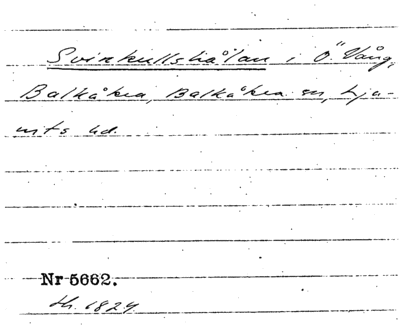 Svinkullshålan i Ö. Vång,
Balkåkra, Balkåkra sn, Lju-
nits hd.
Nr 5662.
th. 1824